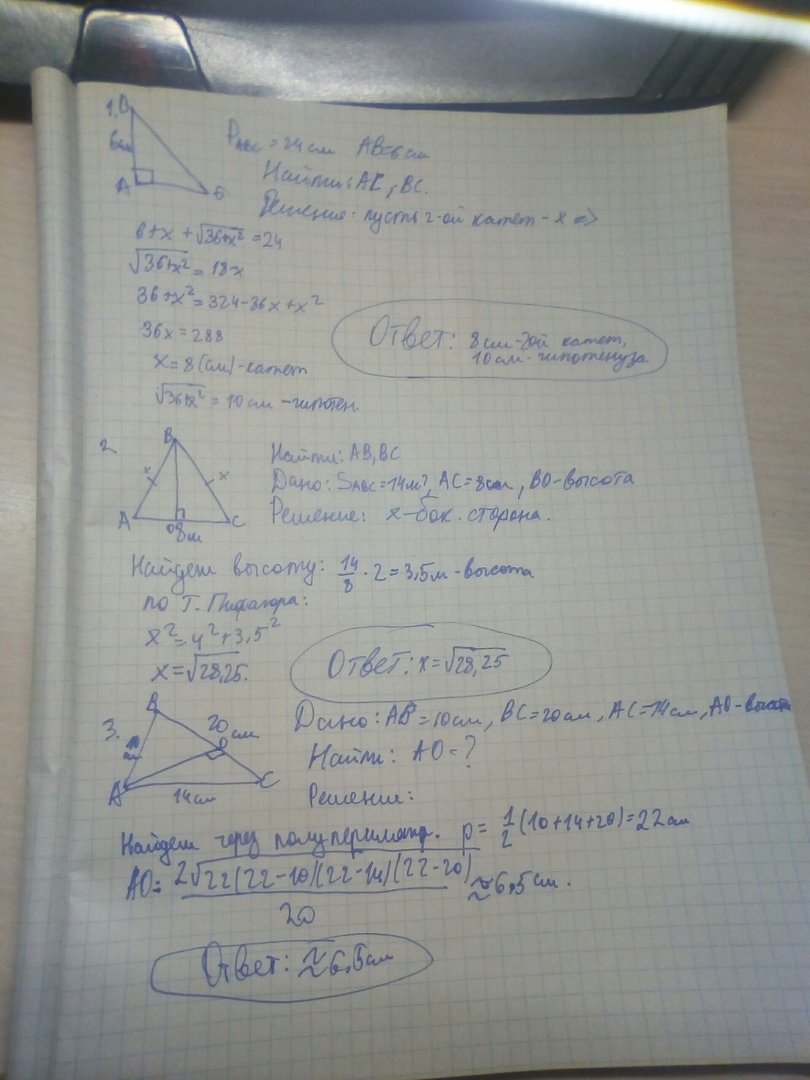 1. B
6см
A
P_ABC = 24 см AB=6см
Найти: AC, BC.
Решение: пусть 2-ой катет - x =>
6+x+√36+x² = 24
√36+x² = 18-x
36+x² = 324-36x+x²
36x = 288
x = 8(см)-катет
√36+x² = 10см -гипотен.
Ответ: 8см-2ой катет,
10см-гипотенуза
2. B
x x
A O C
8м
Найти: AB, BC
Дано: S_ABC = 14м², AC = 8см, BO-высота
Решение: x-бок. сторона.
Найдем высоту: 14/8 · 2 = 3,5м -высота
по Т. Пифагора:
x² = 4² + 3,5²
x = √28,25.
Ответ: x = √28,25
3. B
20см
O
A C
14см
Дано: AB = 10см, BC = 20см, AC = 14см, AO-высота
Найти: AO = ?
Решение:
Найдем через полупериметр. p = 1/2 (10+14+20) = 22см
AO = 2√22(22-10)(22-14)(22-20) / 20 ≈ 6,5 см.
Ответ: ≈ 6,5см